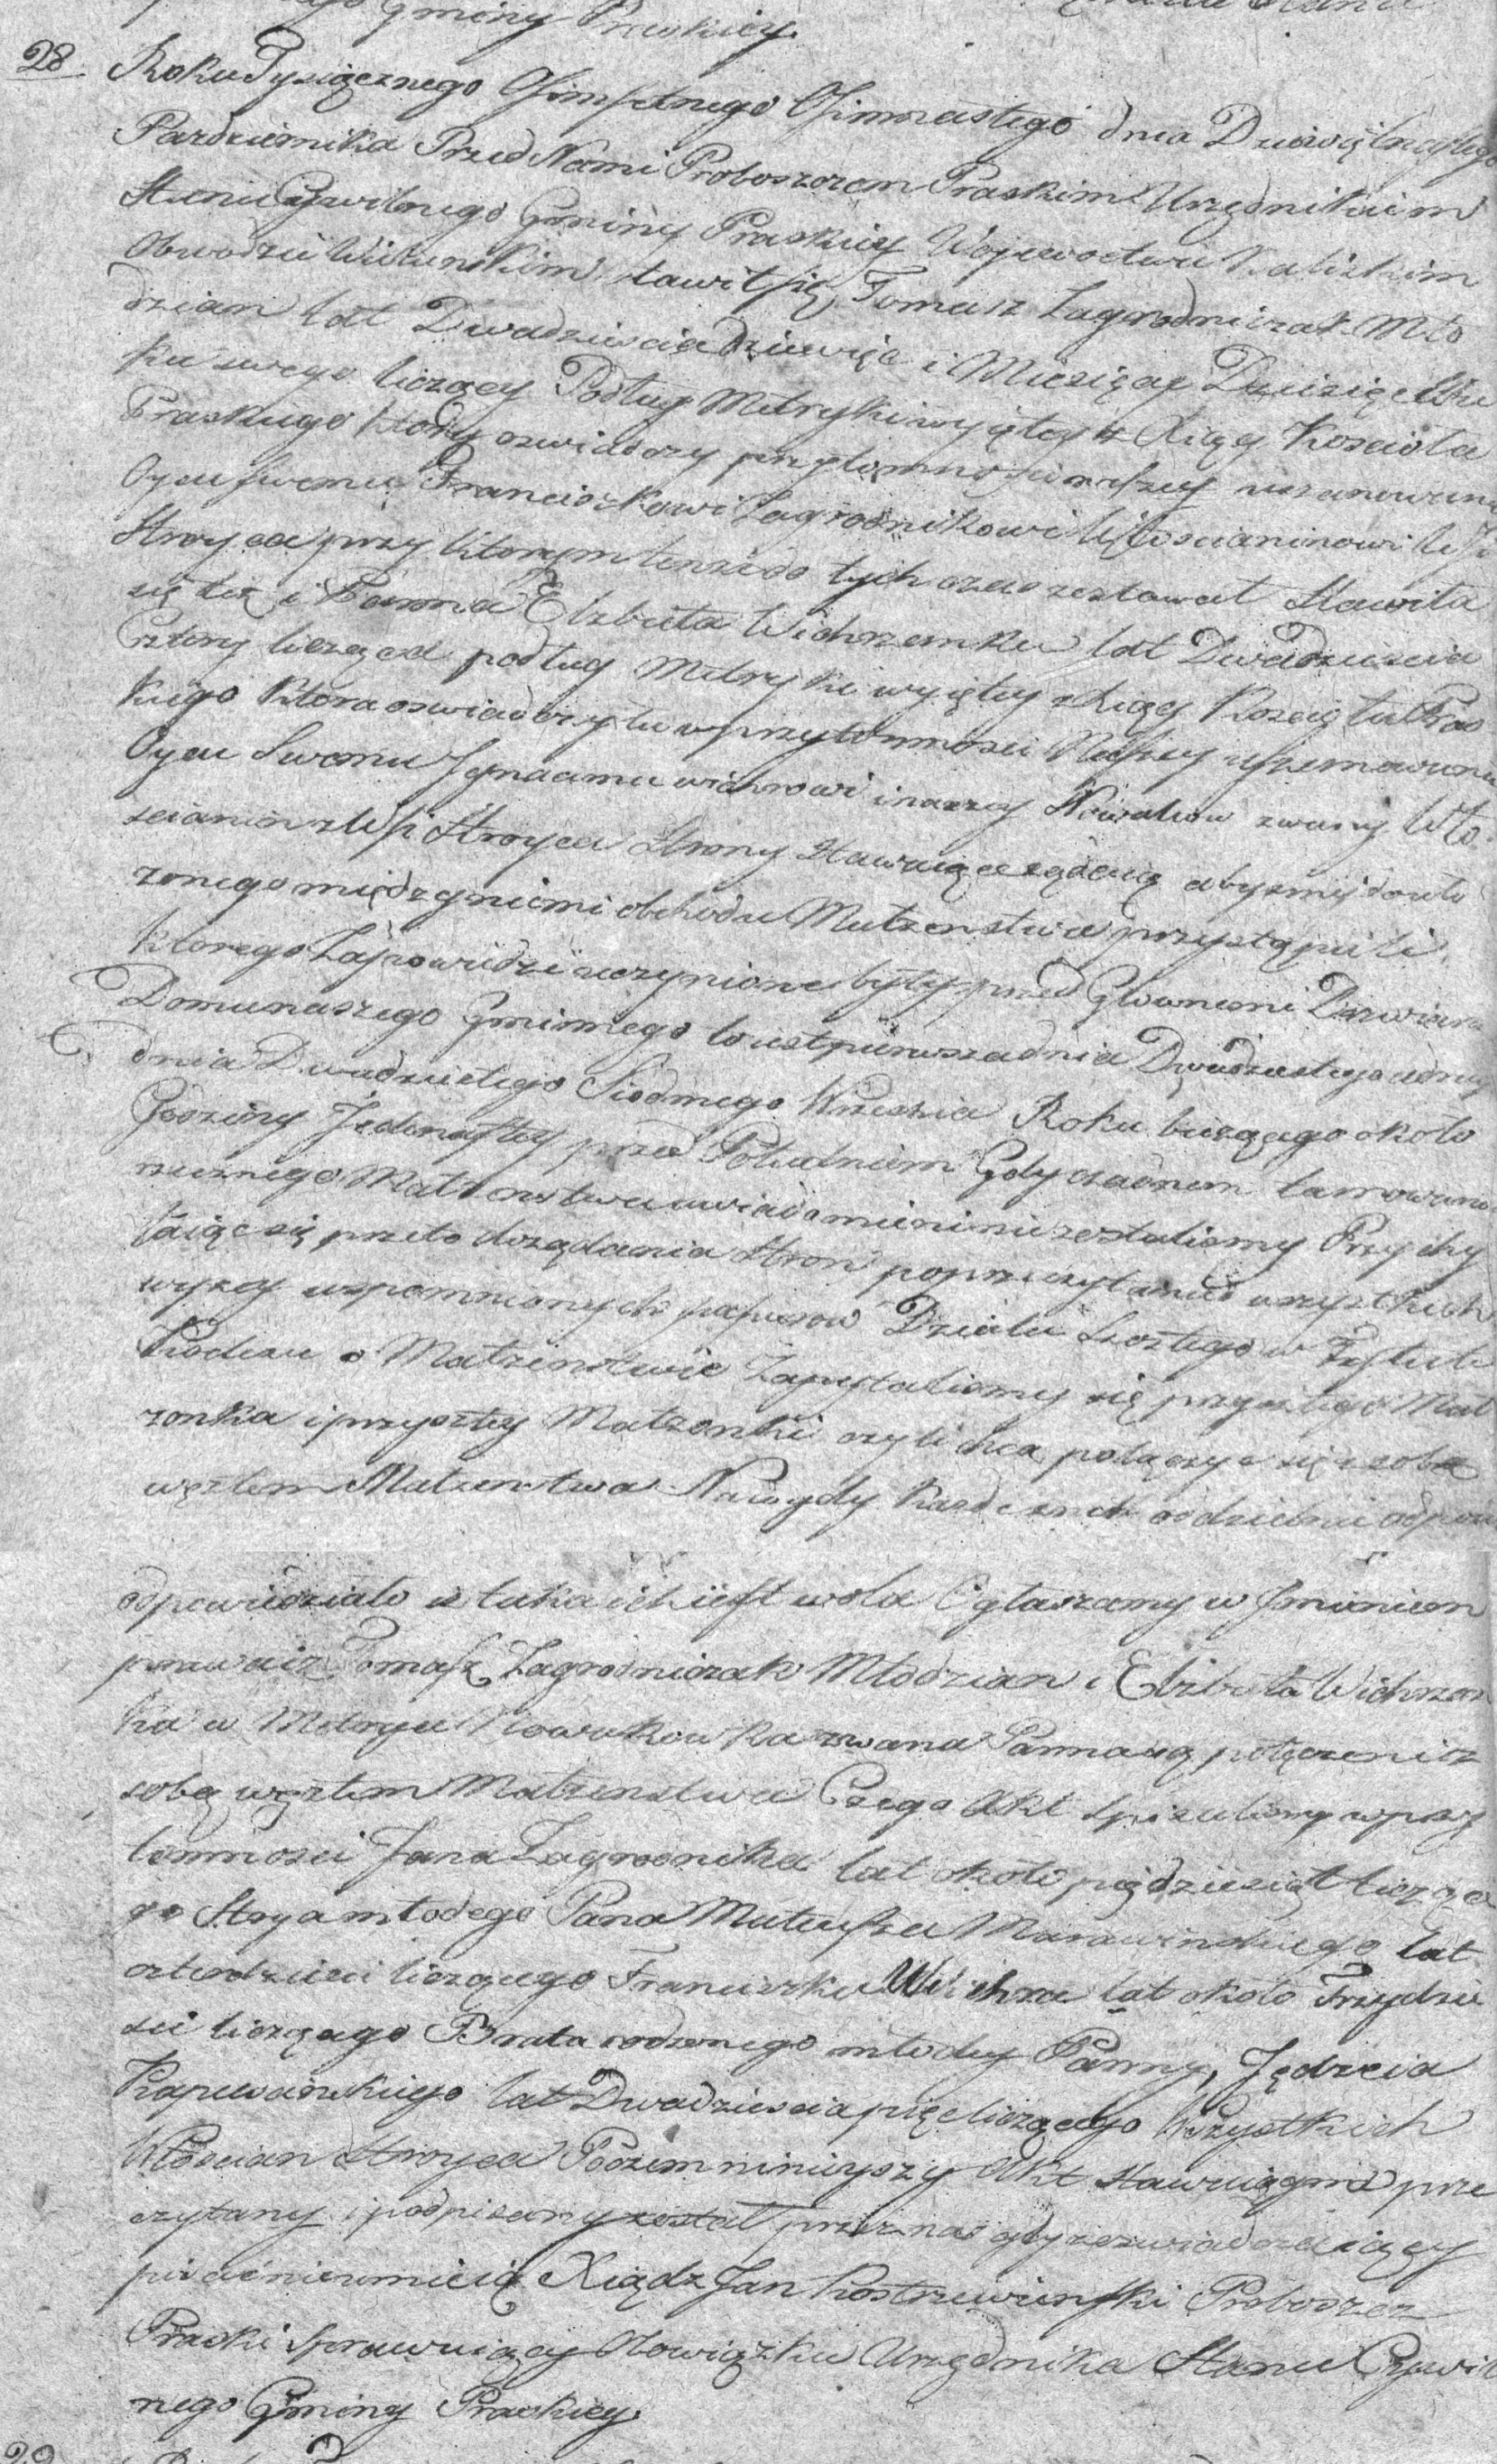 Gminy Praskiey.
28 Roku Tysiącznego Osmsetnego Osmnastego dnia Dziewiętnastego
Pazdziernika Przed Nami Proboszczem Praskim Urzędnikiem
Stanu Cywilnego Gminy Praskiey Wojewodztwie Kaliskim
Obwodzie Wieluńskim stawił się Tomasz Zagrodniczak Mło
dzian lat Dwadziescia dziewięc i Miesięcy Dziesięc Wie
ku swego liczący Podług Metryki wyiętey z Xiąg Koscioła
Praskiego ktory oswiadczy przytomnosci naszey uszanowanie
Oycu swemu Franciszkowi Zagrodnikowi Włoscianinowi Wsi
Stroyca przy ktorym tenże do tych czas zostawał Stawiła
się też i Panna Elzbieta Wichrzonka lat Dwadziescia
Cztery licząca podług Metryki wyiętey z Xiąg Koscioła Pras
kiego ktora oswiadczyła w przytomnosci Naszey uszanowanie
Oycu Swemu Jgnacemu Wichrowi inaczey Nowakow zwany Wło
scianin z Wsi Stroyca Strony Stawaiące żądaią abysmy do uło
żonego między niemi obchodu Małzenstwa przystąpili
ktorego Zapowiedzi uczynione były przed Głownemi Drzwiami
Domu naszego Gminnego to iest pierwsza dnia Dwudziestego druga
dnia Dwudziestego Siodmego Wrzesnia Roku bieżącego około
Godziny Jedenastey przed Południem Gdy o żadnem tamowaniu
rzeczonego Małżenstwa uwiadomieni nie zostalismy Przychy
laiąc się przeto do żądania Stron po przeczytaniu wszystkich
wyżey wspomnionych papierow Działu Szostego w Tytule
Kodexu o Małzenstwie Zapytalismy się przyszłego Mał
żonka i przyszłey Małżonki czyli chcą połączyć się z sobą
węzłem Małzenstwa Na co gdy każde z nich oddzielnie odpowie
odpowiedziało iż taka ich iest wola Ogłaszamy w Jmieniem
prawa iż Tomasz Zagrodniczak Młodzian i Elżbieta Wichrzon
ka w Metryce Nowakowka zwana Panna są połączeni z
sobą węzłem Małzenstwa Czego Akt spisalismy w przy
tomnosci Jana Zagrodnika lat około piędziesiąt liczące
go Stryia młodego Pana Mateusza Marawinskiego lat
czterdziesci liczącego Franciszka Wichra lat około Trzydzie
sci liczącego Brata rodzonego młodey Panny, Jędrzeia
Kapuscinskiego lat Dwadziescia pięc liczącego Wszystkich
Włoscian Stroyca Poczem ninieyszy Akt Stawaiącym prze
czytany i podpisany został przez nas gdyż oswiadczaiący
pisać nieumieią Xiądz Jan Kostrzewinski Proboszcz
Praski Sprawuiący Obowiązki Urzędnika Stanu Cywil
nego Gminy Praskiey.
29